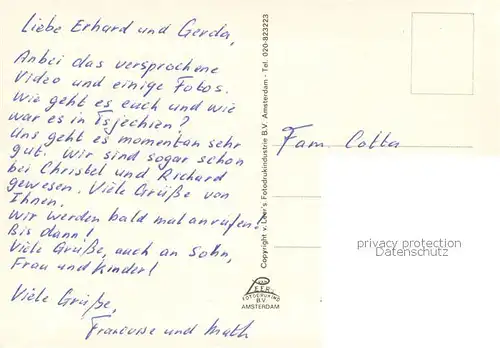 Liebe Erhard und Gerda,
Anbei das versprochene
Video und einige Fotos.
Wie geht es euch und wie
war es in Tsjechien?
Uns geht es momentan sehr
gut. Wir sind sogar schon
bei Christel und Richard
gewesen. Viele Grüße von
Ihnen.
Wir werden bald mal anrufen.
Bis dann!
Viele Grüße, auch an Sohn,
Frau und Kinder!
Viele Grüße,
Francoise und Math
Copyright v. Leer's Fotodrukindustrie B.V. Amsterdam - Tel. 020-823223
VAN
LEER'S
FOTODRUK IND
B.V.
AMSTERDAM
Fam. Cotta
privacy protection
Datenschutz